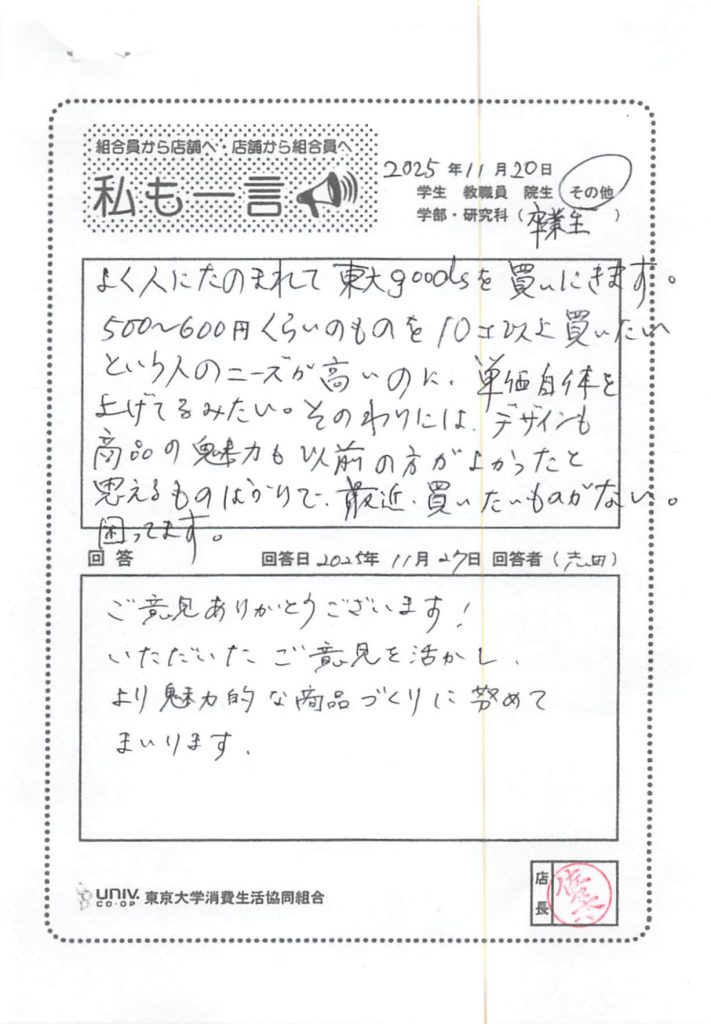 組合員から店舗へ・店舗から組合員へ
私も一言
2025年11月20日
学生 教職員 院生 その他
学部・研究科(卒業生)
よく人にたのまれて東大goodsを買いにきます。
500〜600円くらいのものを10コ以上買いたい
という人のニーズが高いのに、単価自体を
上げてるみたい。そのわりには、デザインも
商品の魅力も以前の方がよかったと
思えるものばかりで、最近、買いたいものがない。
困ってます。
回答 回答日2025年11月27日 回答者(志田)
ご意見ありがとうございます!
いただいたご意見を活かし、
より魅力的な商品づくりに努めて
まいります。
UNIV. CO-OP 東京大学消費生活協同組合
店長